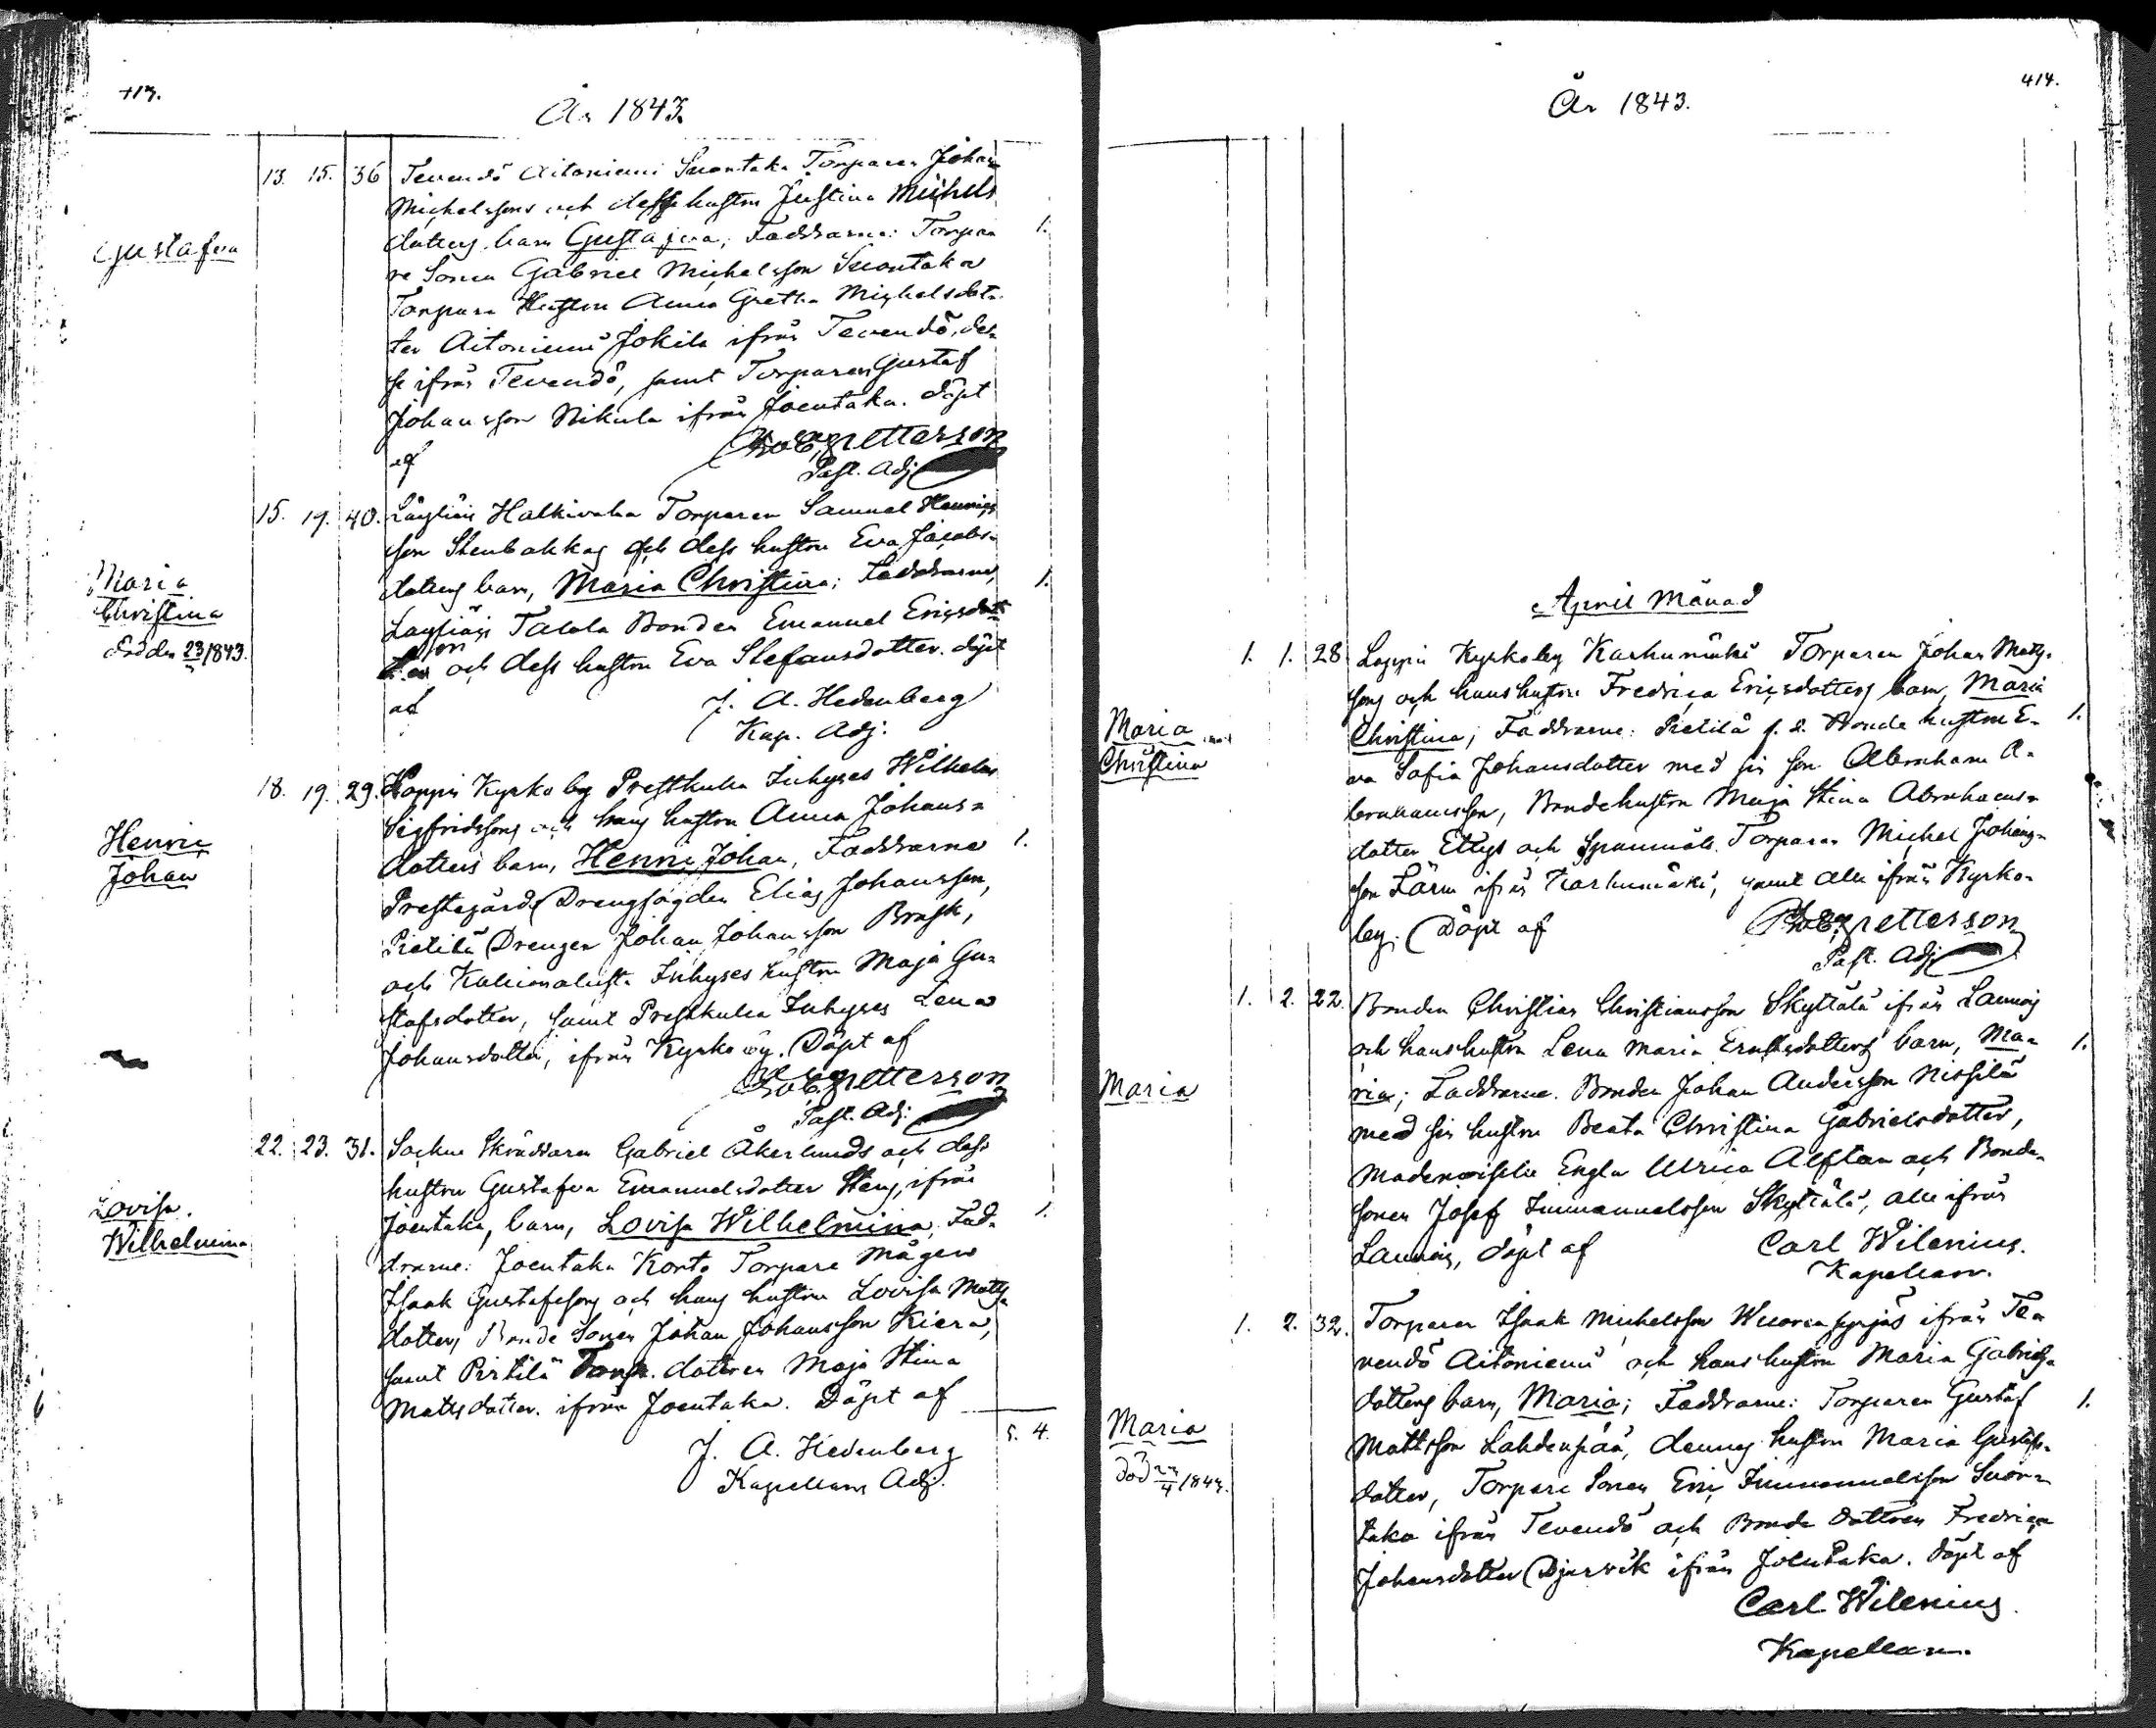 413.
År 1843.
13. 15. 36 Tevendö Aitoniemi Suontaka Torparen Johan
Michelssons och dess hustru Justina Michels
Gustafva
dotters barn Gustafva; Faddrarne: Torpa= 1.
re Sonen Gabriel Michelsson Suontaka
Torpare Hustrun Anna Greta Michelsdot=
ter Aitoniemi Jokila ifrån Tevendö, des=
se ifrån Tevendö, samt Torparen Gustaf
Johansson Nikula ifrån Joentaka. döpt
af
petterson
Past. Adj
15. 19. 40. Läyliäis Halkivaha Torparen Samuel Hennings
son Stenbakkas och dess hustru Eva Jacobs=
Maria
Christina
död den 23/1843.
dotters barn, Maria Christina; Faddrarne, 1.
Läyliäis Talola Bonden Emanuel Ericsdot
son
ter och dess hustru Eva Stefansdotter. döpt
af J. A. Hedenberg
Kap. Adj.
18. 19. 29. Loppis Kyrko by Prestkulla Inhyses Wilhelm
Sigfridssons och hans hustru Anna Johans=
Henric
Johan
dotters barn, Henric Johan, Faddrarne 1.
Prestegårds Drengfogden Elias Johansson,
Pietilä Drengen Johan Johansson Brask,
och Inhyses hustru Maja Gu=
stafsdotter, samt Prestkulla Inhyses Lena
Johansdotter, ifrån Kyrko by. Döpt af
petterson
Past. Adj.
22. 23. 31. Sockne Skräddaren Gabriel Åkerlunds och dess
hustru Gustafva Emanuelsdotter Stens, ifrån
Lovisa.
Wilhelmina
Joentaka, barn, Lovisa Wilhelmina. Fad= 1.
drarne: Joentaka Konto Torpare Mågen
Isaak Gustafssons och hans hustru Lovisa Matts
dotters Bonde Sonen Johan Johansson Kiera,
samt Pirtilä Torp. dottren Maja Stina
Mattsdotter. ifrån Joentaka. Döpt af
5. 4.
J. A. Hedenberg
Kapellans Adj.
414.
År 1843.
April Månad
1. 1. 28 Loppis Kyrkoby Karhumäki Torparen Johan Matts=
sons och hans hustru Fredrica Ericsdotters barn, Maria
Maria
Christina
Christina; Faddrarne: Pietilä f. d. Bonde hustru E= 1.
va Sofia Johansdotter med sin son Abraham A=
brahamsson, Bondehustrun Maja Stina Abrahams=
dotter Ettys och Spannmåls Torparen Michel Johans=
son Lärn ifrån Karhumäki, samt alle ifrån Kyrko=
by. Döpt af
petterson
Past. Adj
1. 2. 22. Bonden Christian Christiansson Skyttälä ifrån Launois
och hans hustru Lena Maria Ernstsdotters barn, Ma= 1.
Maria
ria; Faddrarne. Bonden Johan Andersson Nissilä
med sin hustru Beata Christina Gabrielsdotter,
Mademoiselle Engla Ulrica Alftan och Bonde=
sonen Josef Immanuelsson Skyttälä, alle ifrån
Launois, döpt af Carl Wilenius.
Kapellan.
1. 2. 32. Torparen Isaak Michelsson ifrån Te=
vendö Aitoniemi och hans hustru Maria Gabriels=
dotters barn, Maria; Faddrarne: Torparen Gustaf 1.
Maria
död 4/1843.
Mattsson Lahdenpää, dennes hustru Maria Gustafs=
dotter, Torpare Sonen Eric Immanuelsson Suon=
taka ifrån Tevendö och Bonde dottren Fredrica
Johansdotter Djurvik ifrån Joentaka. döpt af
Carl Wilenius.
Kapellan.